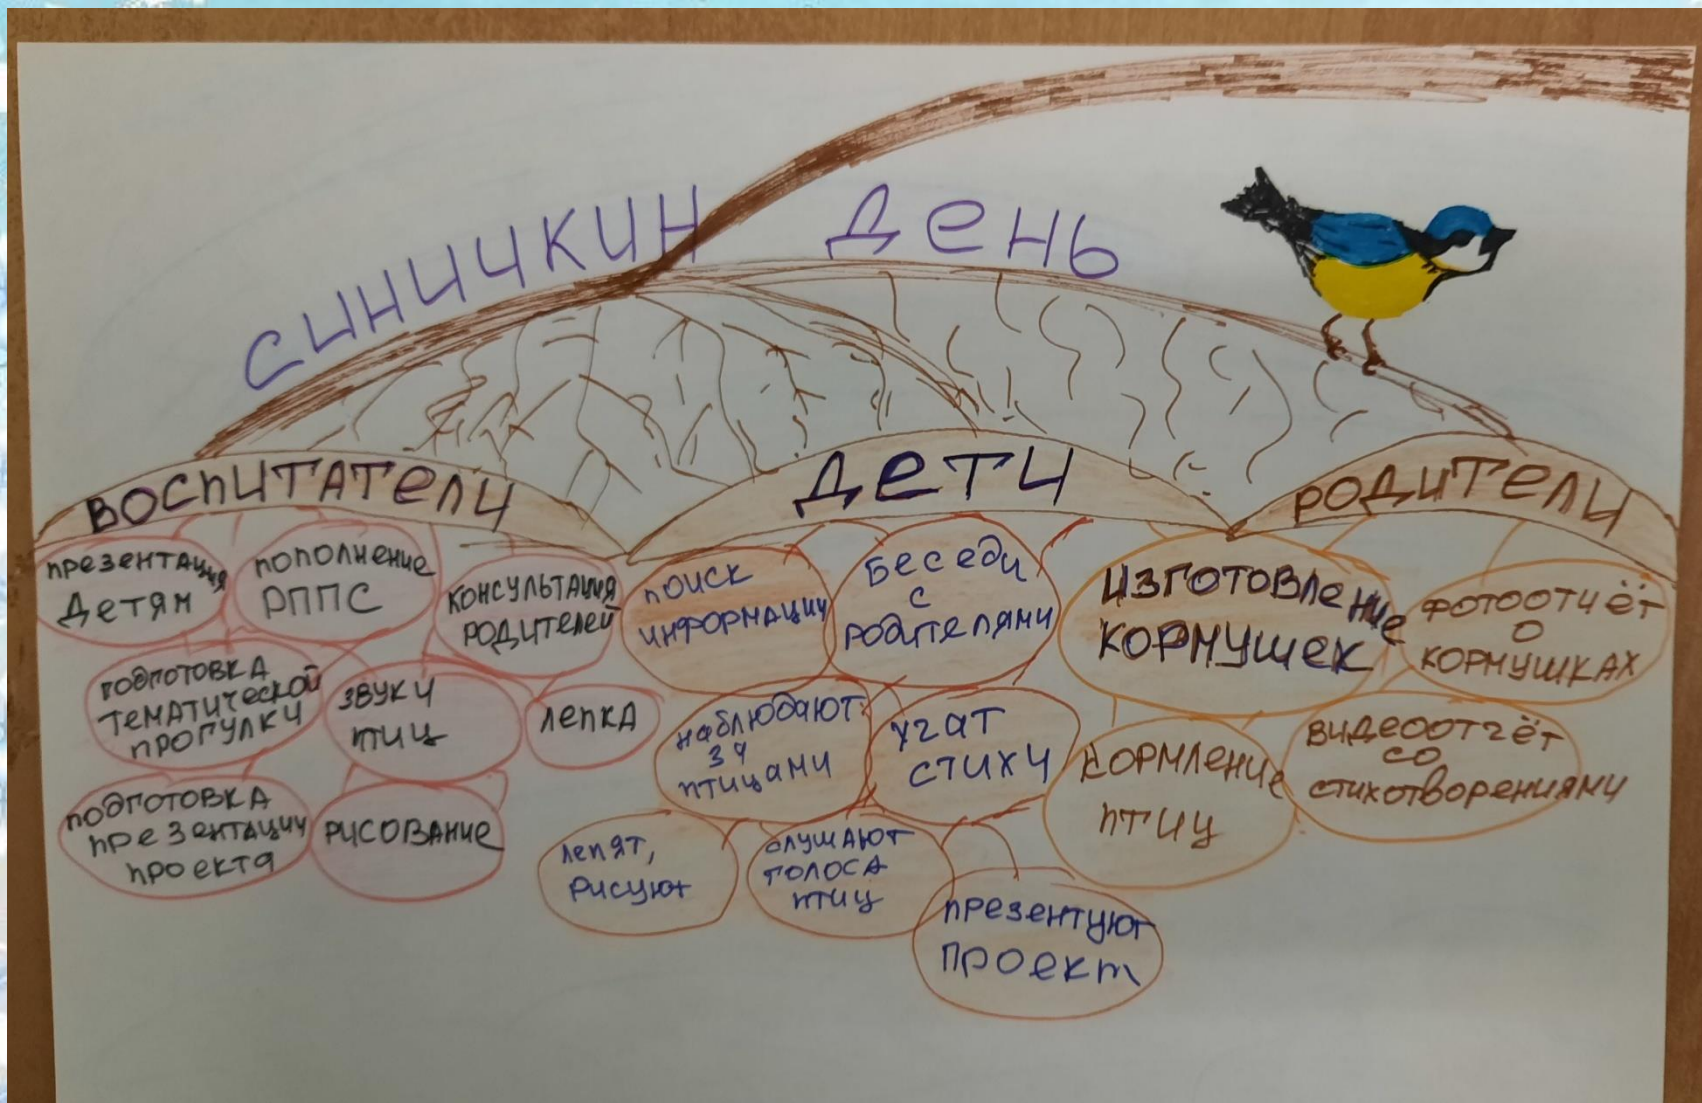 СИНИЧКИН ДЕНЬ
ВОСПИТАТЕЛИ
презентация
детям
пополнение
РППС
консультация
родителей
подготовка
тематической
прогулки
звуки
птиц
лепка
подготовка
презентации
проекта
рисование
ДЕТИ
поиск
информации
Беседы
с
родителями
наблюдают
за
птицами
учат
стихи
лепят,
рисуют
слушают
голоса
птиц
презентуют
проект
РОДИТЕЛИ
изготовление
кормушек
фотоотчёт
о
кормушках
кормление
птиц
видеоотчёт
со
стихотворениями